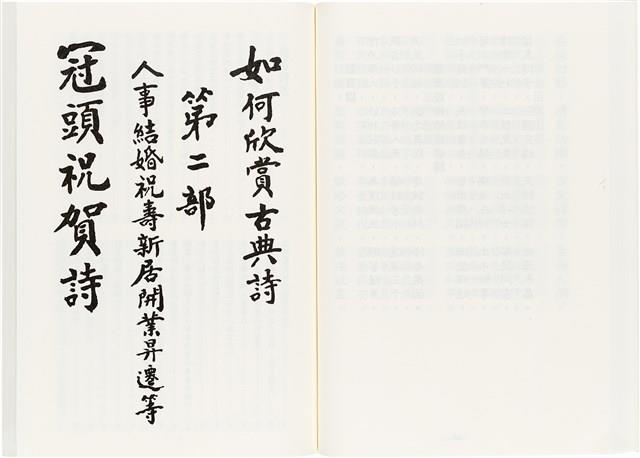 如何欣賞古典詩
第二部
人事結婚祝壽新居開業昇遷等
冠頭祝賀詩